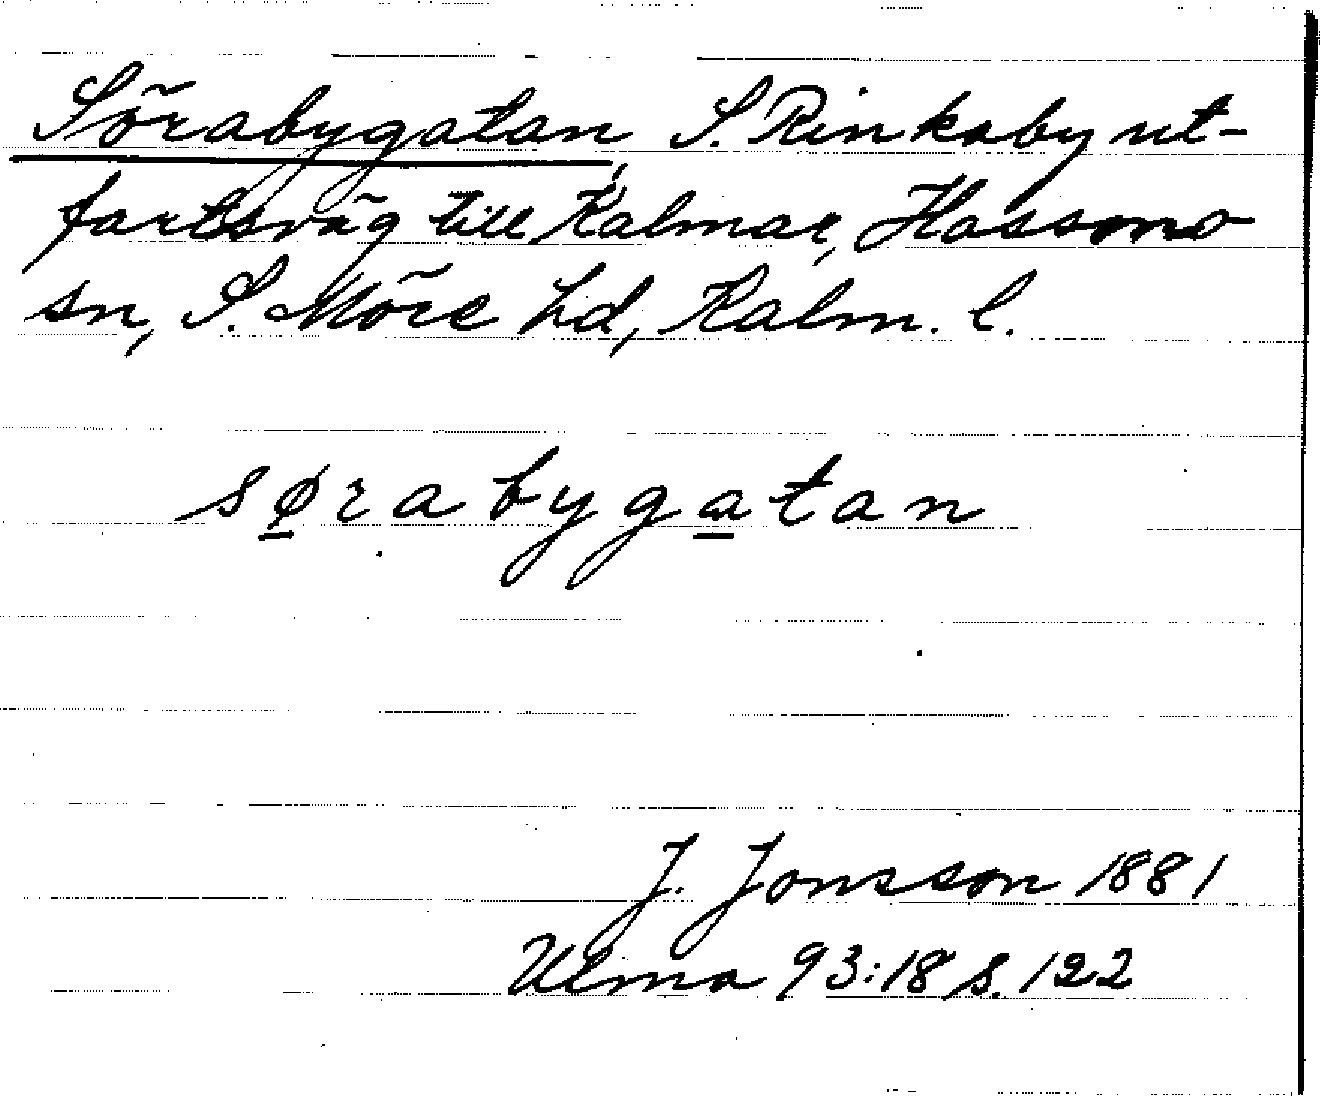 Sörabygatan, S. Rinkaby ut-
fartsväg till Kalmar, Hossmo
sn, S. Möre hd, Kalm. l.
sørabygatan
J. Jonsson 1881
Ulma 93:18 s. 122